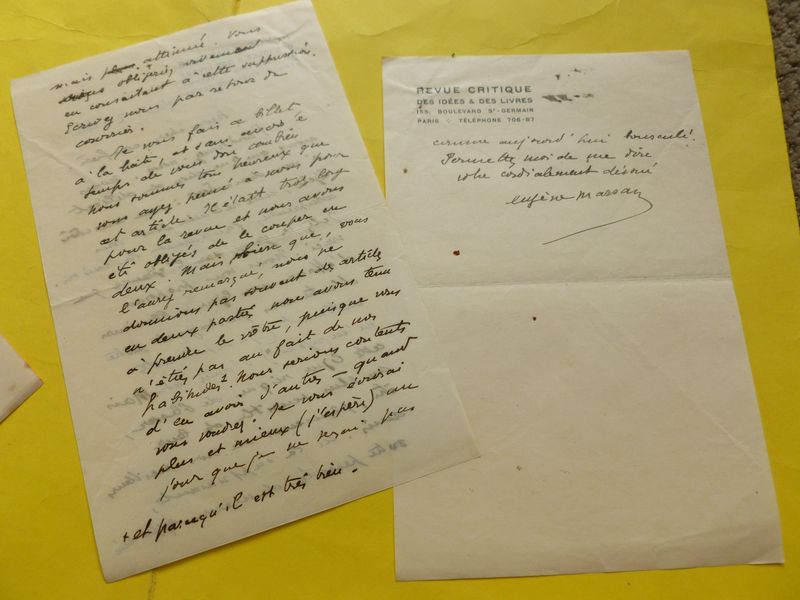 mais plus atténué. Vous
nous obligeriez vivement
en consentant à cette suppression.
Ecrivez nous par retour du
courrier.
Je vous fais ce billet
à la hâte, et sans avoir le
temps de vous dire combien
nous sommes tous heureux que
vous ayez pensé à nous pour
cet article. Il était trop long
pour la revue et nous avons
été obligés de le couper en
deux. Mais bien que, vous
l'aurez remarqué, nous ne
donnions pas souvent des articles
en deux parties nous avons tenu
à prendre le vôtre, puisque vous
n'étiez pas au fait de nos
habitudes+. Nous serions contents
d'en avoir d'autres – quand
vous voudrez. Je vous écrirai
plus et mieux (j'espère) un
jour que je ne serai pas
+ et parce qu'il est très bien.
REVUE CRITIQUE
DES IDÉES & DES LIVRES
155, BOULEVARD St-GERMAIN
PARIS TÉLÉPHONE 706-87
comme aujourd'hui bousculé!
Permettez moi de me dire
votre cordialement dévoué
Eugène Marsan